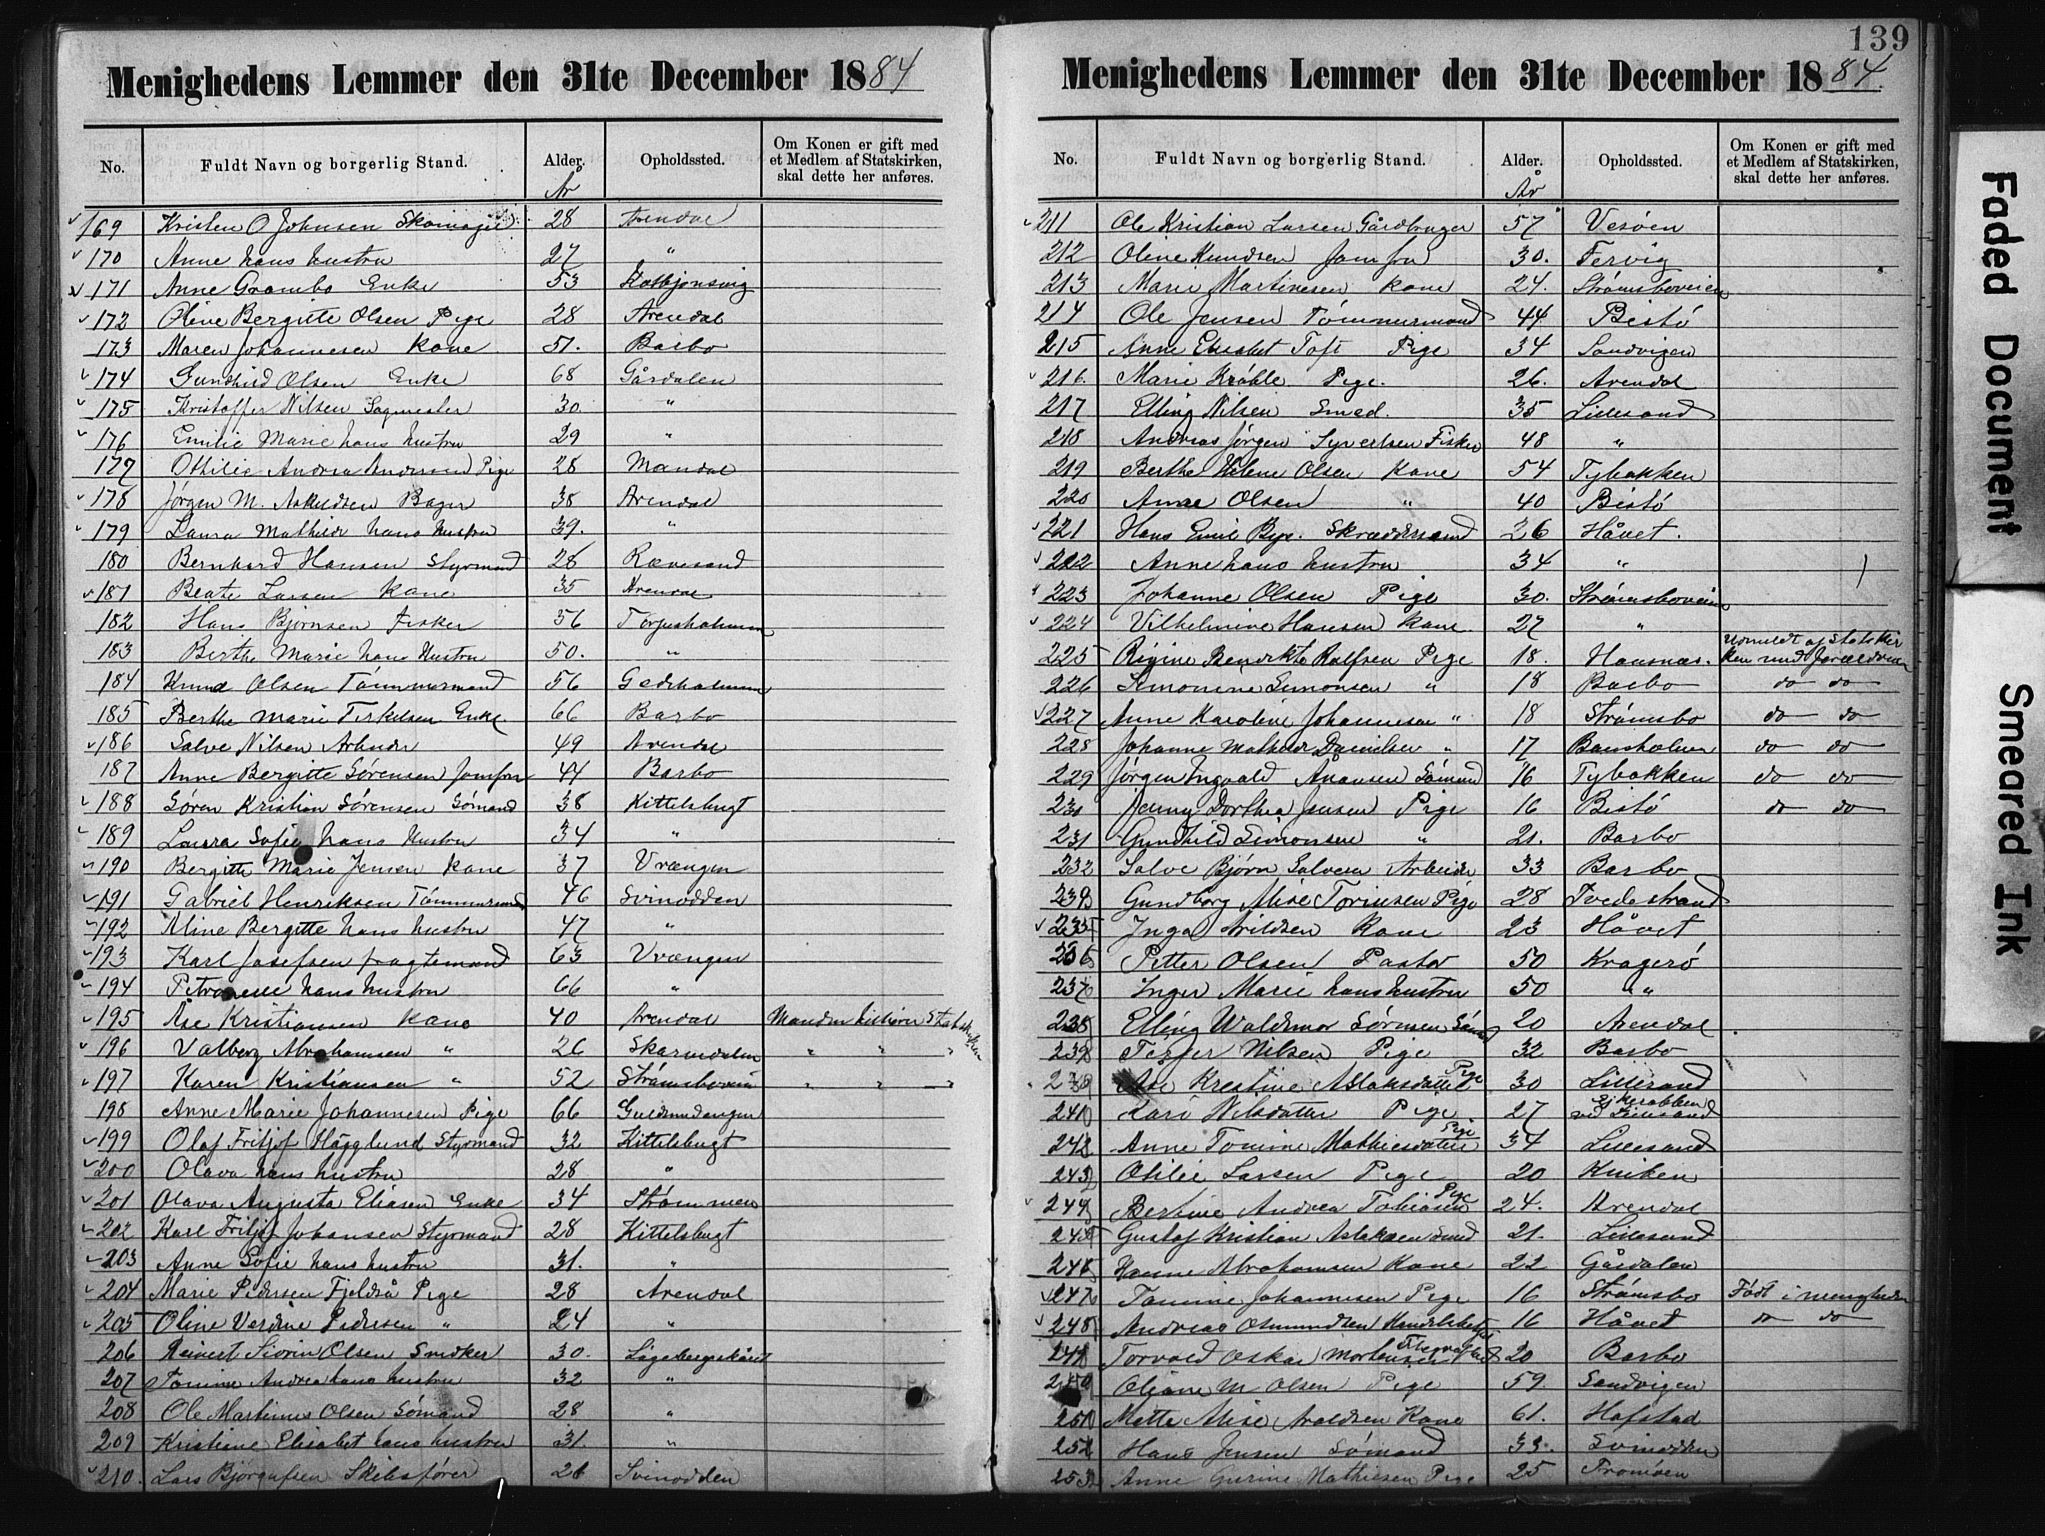 139
Menighedens Lemmer den 31te December 1884
No. Fuldt Navn og borgerlig Stand. Alder. Opholdssted. Om Konen er gift med et Medlem af Statskirken, skal dette her anføres.
År
169 Kristen O Johnsen 28 Arendal
170 Anne hans hustru 27 "
171 Anne Grambo Enke 53
172 Oline Bergitte Olsen Pige 28 Arendal
173 Maren Johannesen Kone 51. Barbo
174 Gunhild Olsen Enke 68 Gårdalen
175 Kristoffer Nilsen Sagmester 30 "
176 Emilie Marie hans hustru 29 "
177 Othilie Andrea Andersen Pige 28 Mandal
178 Jørgen M. Bager 38 Arendal
179 Laura Mathilde hans hustru 39. "
180 Bernhard Hansen Styrmand 28 Revesand
181 Beate Larsen Kone 35 Arendal
182 Hans Bjørnsen Fisker 56 Torjusholmen
183 Berthe Marie hans hustru 50. "
184 Knud Olsen Tømmermand 56 Gedeholmen
185 Berthe Marie Terkelsen Enke. 66 Barbo
186 Salve Nilsen Arbeider 49 Arendal
187 Anne Bergitte Sørensen Jomfru 44 Barbo
188 Søren Kristian Sørensen Sømand 38 Kittelsbugt
189 Laura Sofie hans hustru 34 "
190 Bergitte Marie Jensen Kone 37 Vrængen
191 Gabriel Henriksen Tømmermand 46 Svinodden
192 Aline Bergitte hans hustru 47 "
193 Karl Josefsen fragtemand 63 Vrængen
194 Petronelle hans hustru 66 "
195 Åse Kristiansen Kone 40 Arendal Manden tilhører Statskirken
196 Valborg Abrahamsen " 26 Skarvedalen " " "
197 Karen Kristiansen " 52 Strømsboveien " " "
198 Anne Marie Johannesen Pige 66
199 Olaf Fritjof Hägglund Styrmand 32 Kittelsbugt
200 Olava hans hustru 28 "
201 Olava Augusta Eliasen Enke 34 Strømmen
202 Karl Fritjof Johansen Styrmand 28 Kittelsbugt
203 Anne Sofie hans hustru 31. "
204 Marie Pedersen Fjeldså Pige 28 Arendal
205 Oline Verdine Pedersen " 24 "
206 Reinert Siorin Olsen Snedker 30.
207 Tomine Andrea hans hustru 32 "
208 Ole Martinus Olsen Sømand 28 "
209 Kristine Elisabet hans hustru 31. "
210. Lars Bjørgufsen Skibsfører 26 Svinodden
Menighedens Lemmer den 31te December 1884.
No. Fuldt Navn og borgerlig Stand. Alder. Opholdssted. Om Konen er gift med et Medlem af Statskirken, skal dette her anføres.
År
211 Ole Kristian Larsen Gårdbruger 57 Vesøen
212 Oline Knudsen Jomfru 30. Fervig
213 Marie Martinesen Kone 24. Strømsboveien
214 Ole Jensen Tømmermand 44 Bestø
215 Anne Elisabet Toft Pige 34 Sandvigen
216. Marie Krøble Pige. 26. Arendal
217 Elling Nilsen Smed. 35 Lillesand
218 Andreas Jørgen Syvertsen Fisker 48 "
219 Berthe Helene Olsen Kone 54 Tybakken
220 Anne Olsen " 40 Bestø
221 Hans Emil Skræddersvend 26 Håvet.
222 Anne hans hustru 34 "
223 Johanne Olsen Pige 30. Strømsboveien
224 Vilhelmine Hansen Kone 27 "
225 Regine Bendikte Rolfsen Pige 18. Hansnæs. Udmeldt af Statskirken med Forældrene
226 Simonine Simonsen " 18 Barbo do do
227 Anne Karoline Johannesen " 18 Strømsbo do do
228 Johanne Mathilde Danielsen " 17 do do
229 Jørgen Ingvald Aanonsen Sømand 16 Tybakken do do
230 Jenny Dorthea Jensen Pige 16 Bestø do do
231 Gundhild Simonsen " 21. Barbo
232 Salve Bjørn Salvesen Arbeider 33 Barbo
Gundborg Alise Pige 28 Tvedestrand
235 Inga Arildsen Kone 23 Håvet
236 Petter Olsen Pastor 50 Kragerø
237 Inger Marie hans hustru 50 "
238 Elling Waldemar Sørensen Sømd 20 Arendal
239 Nilsen Pige 32 Barbo
Åse Krestine Aslaksdatter Pige 30 Lillesand
241 Kari Nilsdatter Pige 27 ved Lillesand
242 Anne Tomine Mathiesdatter Pige 34 Lillesand
243 Otilie Larsen Pige 20 Kniken
244 Bertine Andrea Tobiasen Pige 24. Arendal
245 Gustaf Kristian Aslaksen Smed 21. Lillesand
Hanne Abrahamsen Kone 22 Gårdalen
247 Tomine Johannesen Pige 16 Strømsbo Født i menigheden
248 Andreas Osmundsen 16 Håvet do do
Torvald Oskar Mortensen 20 Barbo
Oliane M Olsen Pige 59. Sandvigen
251 Mette Alise Kone 61. Hofstad
252 Hans Jensen Sømand 33. Svinodden
253 Anne Gurine Mathiesen Pige 25 Tromøen
Faded Document
Smeared Ink